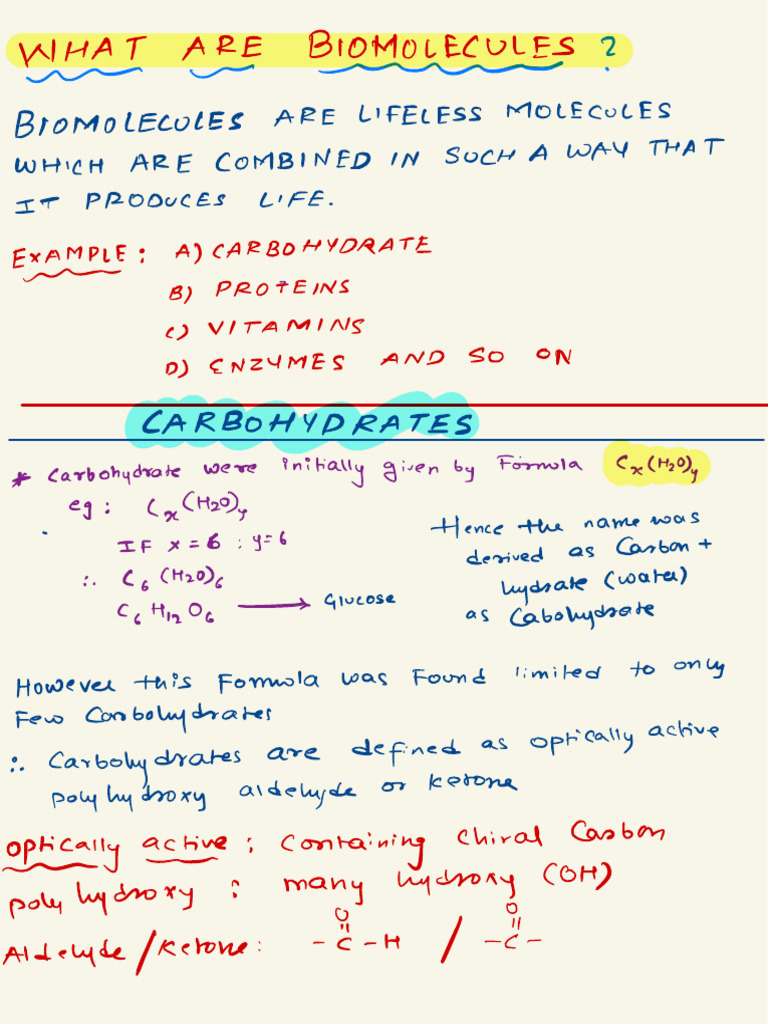 WHAT ARE BIOMOLECULES ?
BIOMOLECULES ARE LIFELESS MOLECULES
WHICH ARE COMBINED IN SUCH A WAY THAT
IT PRODUCES LIFE.
EXAMPLE : A) CARBOHYDRATE
B) PROTEINS
C) VITAMINS
D) ENZYMES AND SO ON
CARBOHYDRATES
* Carbohydrate were initially given by Formula Cx(H2O)y
eg : Cx(H2O)y
IF x = 6 : y = 6
∴ C6(H2O)6
C6H12O6 → Glucose
Hence the name was
derived as Carbon +
hydrate (water)
as Cabohydrate
However this Formula was Found limited to only
Few Carbohydrates
∴ Carbohydrates are defined as optically active
polyhydroxy aldehyde or ketone
optically active : Containing Chiral Carbon
poly hydroxy : many hydroxy (OH)
O O
Aldehyde/Ketone : -C-H / -C-